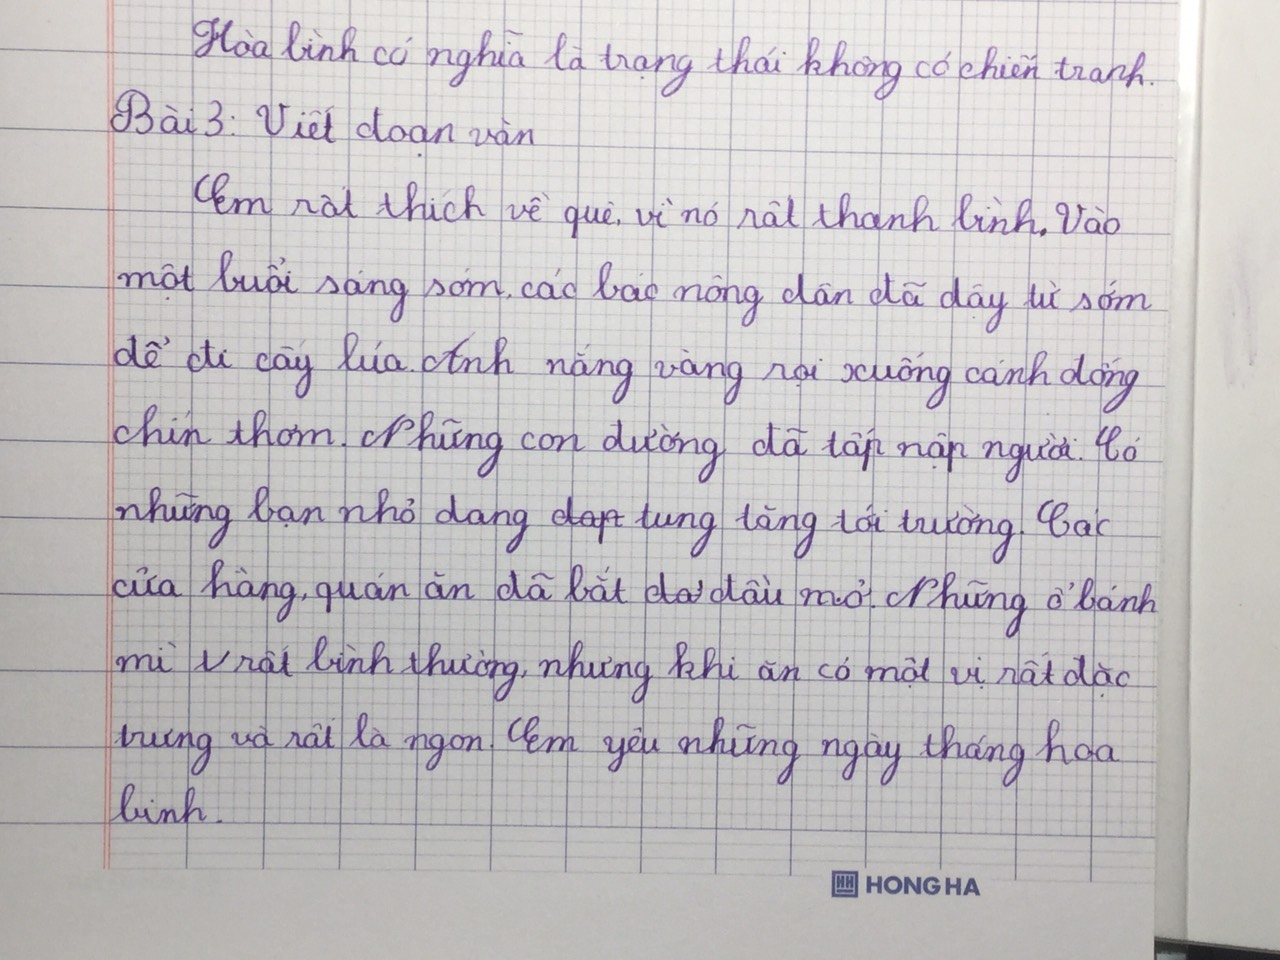 Hòa bình có nghĩa là trạng thái không có chiến tranh.
Bài 3: Viết đoạn văn
Em rất thích về quê, vì nó rất thanh bình. Vào
một buổi sáng sớm, các bác nông dân đã dậy từ sớm
để đi cấy lúa. Ánh nắng vàng rọi xuống cánh đồng
chín thơm. Những con đường đã tấp nập người. Có
những bạn nhỏ đang đạp tung tăng tới trường. Các
cửa hàng, quán ăn đã bắt đầu mở. Những ổ bánh
mì rất bình thường, nhưng khi ăn có một vị rất đặc
trưng và rất là ngon. Em yêu những ngày tháng hòa
bình.
HONG HA